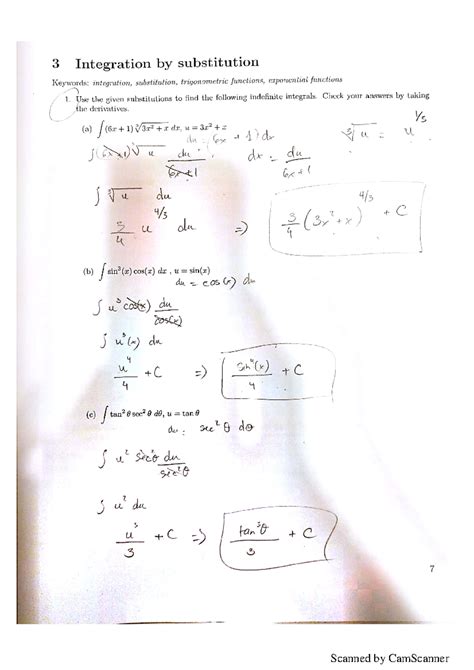 3 Integration by substitution
Keywords: integration, substitution, trigonometric functions, exponential functions
1. Use the given substitutions to find the following indefinite integrals. Check your answers by taking
the derivatives.
(a) ∫(6x + 1) ∛(3x² + x) dx, u = 3x² + x
du = (6x + 1) dx
∛u = u^(1/3)
∫(6x+1) ∛u du/(6x+1)
dx = du/(6x+1)
∫ ∛u du
3/4 u^(4/3) du => 3/4 (3x² + x)^(4/3) + C
(b) ∫ sin³(x) cos(x) dx , u = sin(x)
du = cos(x) dx
∫ u³ cos(x) du/cos(x)
∫ u³(x) du
u⁴/4 + C => sin⁴(x)/4 + C
(c) ∫ tan² θ sec² θ dθ, u = tan θ
du = sec² θ dθ
∫ u² sec²θ du/sec²θ
∫ u² du
u³/3 + C => tan³θ/3 + C
7
Scanned by CamScanner